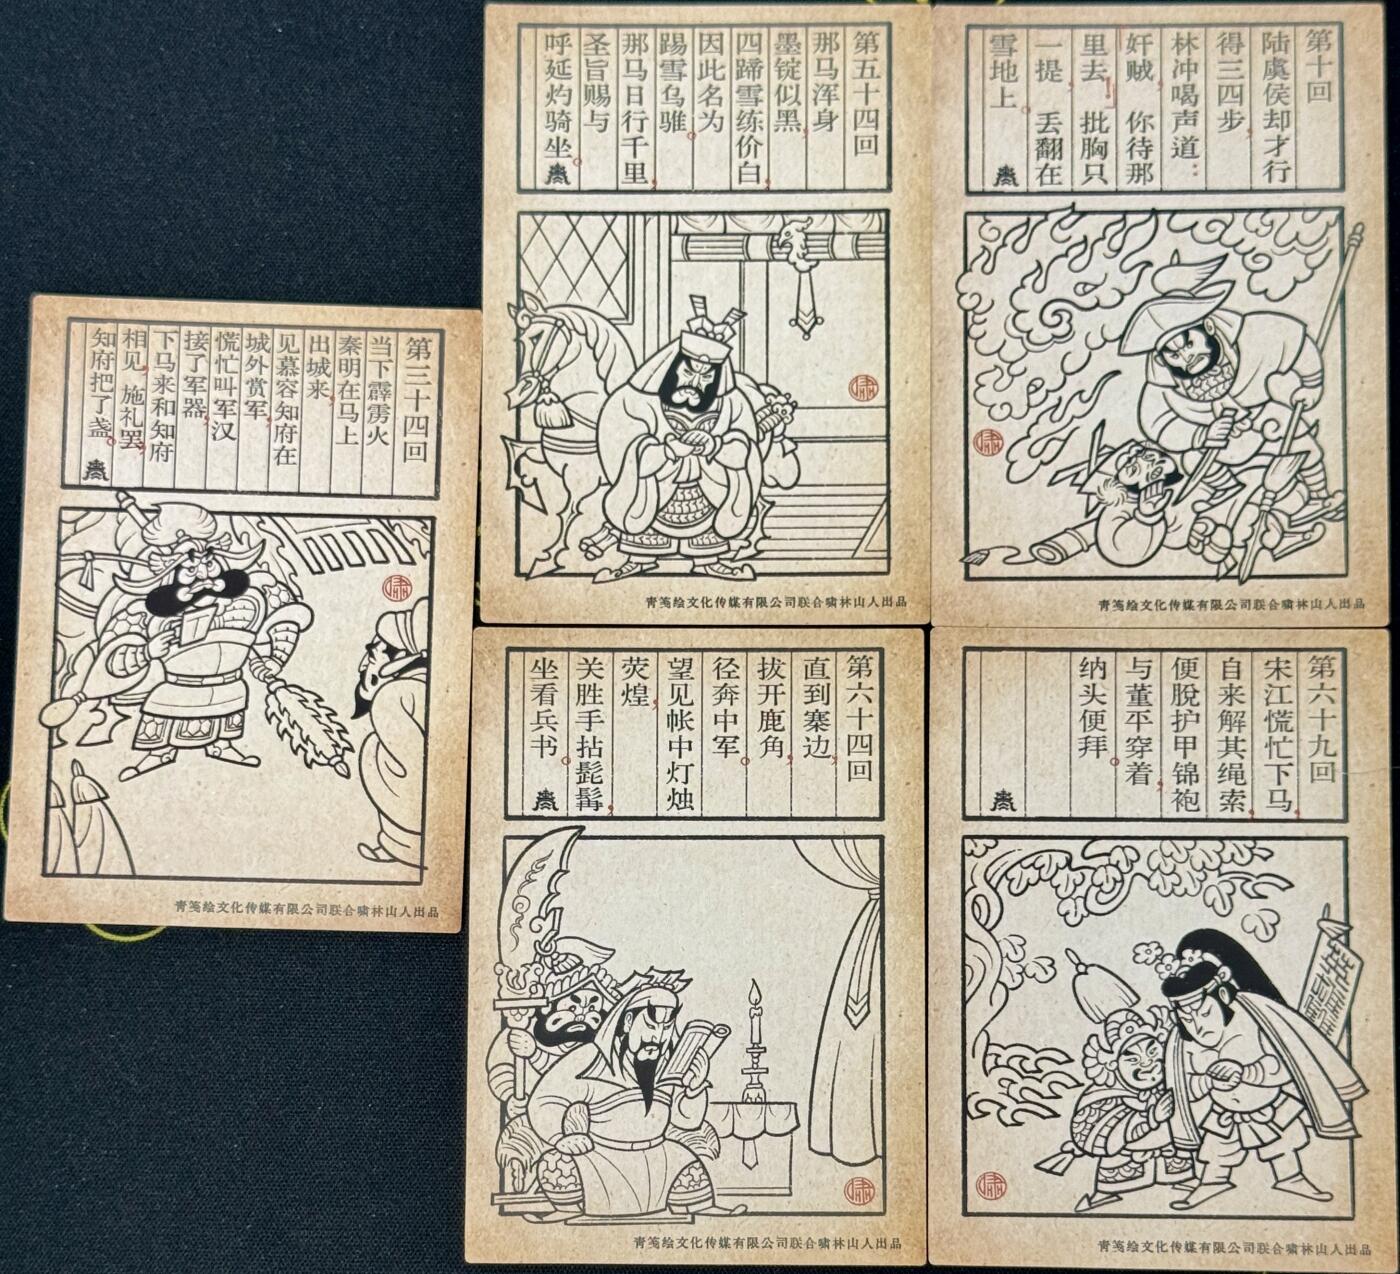 第三十四回
当下霹雳火
秦明在马上
出城来，
见慕容知府在
城外赏军，
慌忙叫军汉
接了军器，
下马来和知府
相见，施礼罢，
知府把了盏。
青笺绘文化传媒有限公司联合啸林山人出品
第五十四回
那马浑身
墨锭似黑，
四蹄雪练价白，
因此名为
踢雪乌骓。
那马日行千里，
圣旨赐与
呼延灼骑坐。
啸
青笺绘文化传媒有限公司联合啸林山人出品
第十回
陆虞侯却才行
得三四步，
林冲喝声道：
奸贼，你待那
里去！批胸只
一提，丢翻在
雪地上。
啸
青笺绘文化传媒有限公司联合啸林山人出品
第六十四回
直到寨边，
拔开鹿角，
径奔中军。
望见帐中灯烛
荧煌，
关胜手拈髭髯，
坐看兵书。
啸
青笺绘文化传媒有限公司联合啸林山人出品
第六十九回
宋江慌忙下马，
自来解其绳索，
便脱护甲锦袍
与董平穿着，
纳头便拜。
啸
青笺绘文化传媒有限公司联合啸林山人出品